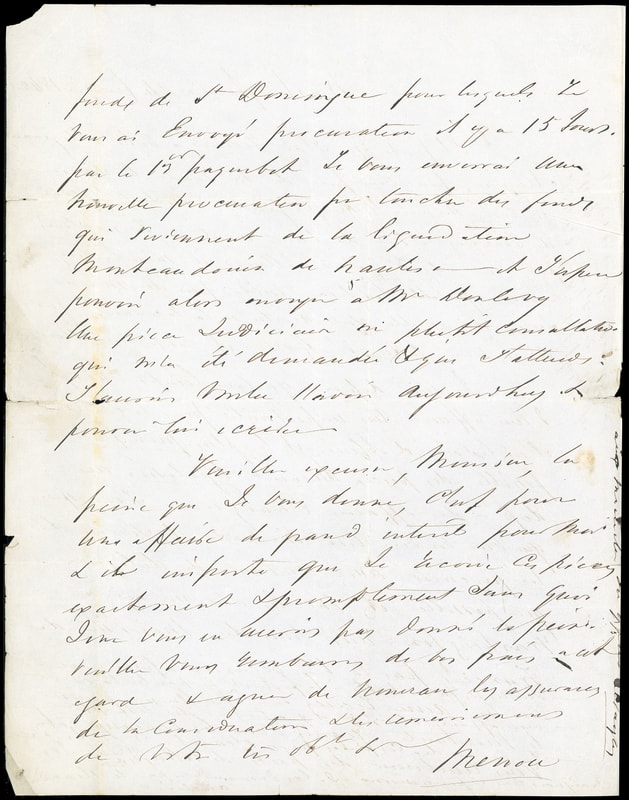 fonds de St Domingue pour lesquels Je
vous ai Envoyé procuration il y a 15 Jours.
par le 1er paquebot Je vous enverrai une
nouvelle procuration pr toucher des fonds
qui reviennent de la liquidation
de et J'espere
pouvoir alors envoyer à Mr
Une piece Judiciaire ou plutôt Consultation
qui m'a été demandée & que J'attends.
J'aurois voulu l'avoir Aujourd'huy &
pouvoir lui ecrire
Veuillez excuser, Monsieur, la
peine que Je vous donne, C'est pour
Une affaire de grand interêt pour Moi
& il importe que Je recoive Ces pieces
exactement & promptement Sans quoi
Je ne vous en aurois pas donné la peine.
Veuillez Vous rembourser de vos frais a cet
egard & agreer de nouveau les assurances
de la Consideration & des remerciements
de Votre tres obt Sr
Menou